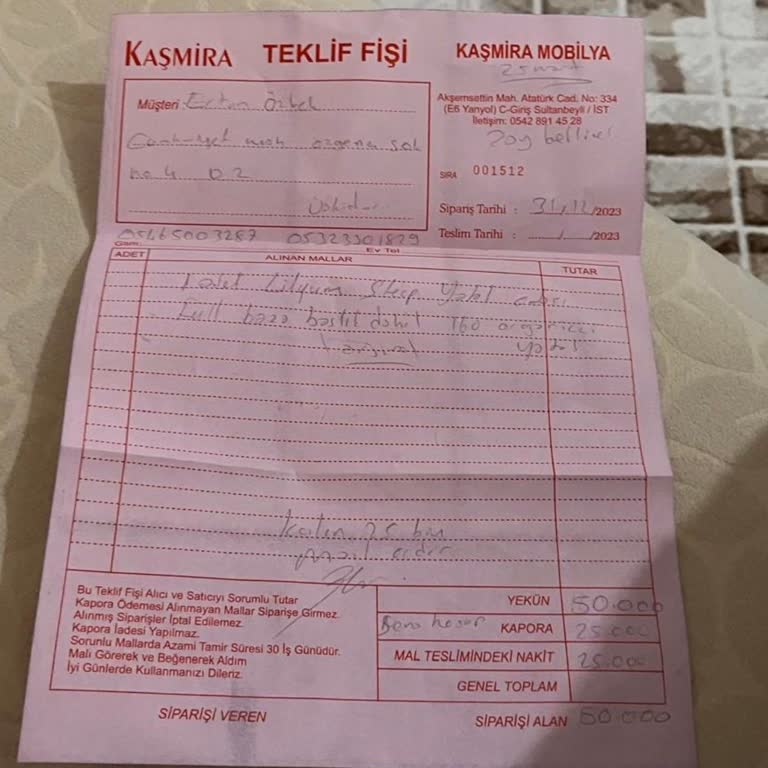 KAŞMİRA TEKLİF FİŞİ KAŞMİRA MOBİLYA
Akşemsettin Mah. Atatürk Cad. No: 334
(E6 Yanyol) C-Giriş Sultanbeyli / İST
İletişim: 0542 891 45 28
Müşteri
no 4 D 2
SIRA 001512
Sipariş Tarihi : 31/12/2023
Teslim Tarihi : ...../...../2023
05465003287 05323301829
Gsm: Ev Tel
ADET ALINAN MALLAR TUTAR
1 adet Lilyum Sleep Yatak odası
Full baza başlık dahil 160
Kalan 25 bin
Bu Teklif Fişi Alıcı ve Satıcıyı Sorumlu Tutar
Kapora Ödemesi Alınmayan Mallar Siparişe Girmez.
Alınmış Siparişler İptal Edilemez.
Kapora İadesi Yapılmaz.
Sorunlu Mallarda Azami Tamir Süresi 30 İş Günüdür.
Malı Görerek ve Beğenerek Aldım
İyi Günlerde Kullanmanızı Dileriz.
YEKÜN 50.000
KAPORA 25.000
MAL TESLİMİNDEKİ NAKİT 25.000
GENEL TOPLAM
SİPARİŞİ VEREN SİPARİŞİ ALAN 50.000